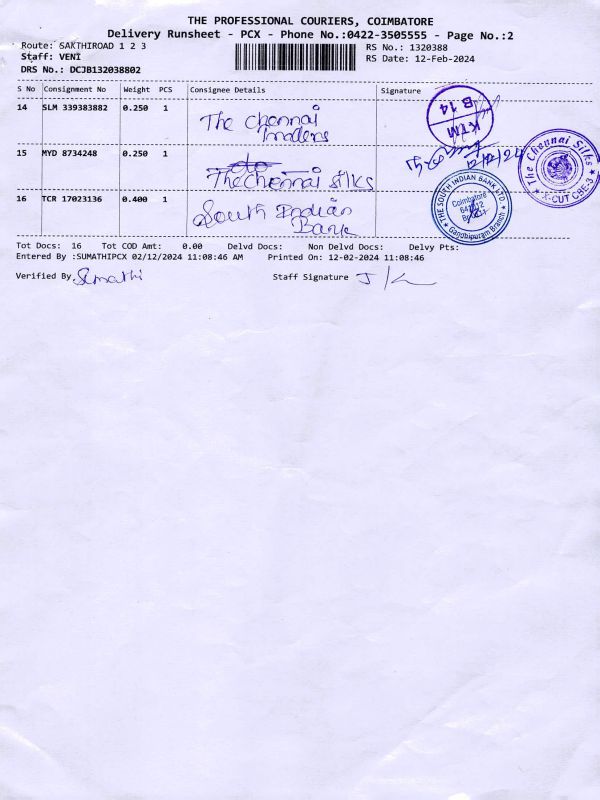 THE PROFESSIONAL COURIERS, COIMBATORE
Delivery Runsheet - PCX - Phone No.:0422-3505555 - Page No.:2
Route: SAKTHIROAD 1 2 3
RS No.: 1320388
Staff: VENI
RS Date: 12-Feb-2024
DRS No.: DCJB132038802
S No Consignment No Weight PCS Consignee Details Signature
14 SLM 339383882 0.250 1 The Chennai
Traders
KTM
B 14
15 MYD 8734248 0.250 1
The Chennai silks
The Chennai Silks
X-CUT CBE-3
16 TCR 17023136 0.400 1 South Indian
Bank
THE SOUTH INDIAN BANK LTD.
Coimbatore
Gandhipuram Branch
Tot Docs: 16 Tot COD Amt: 0.00 Delvd Docs: Non Delvd Docs: Delvy Pts:
Entered By :SUMATHIPCX 02/12/2024 11:08:46 AM Printed On: 12-02-2024 11:08:46
Verified By. Sumathi Staff Signature